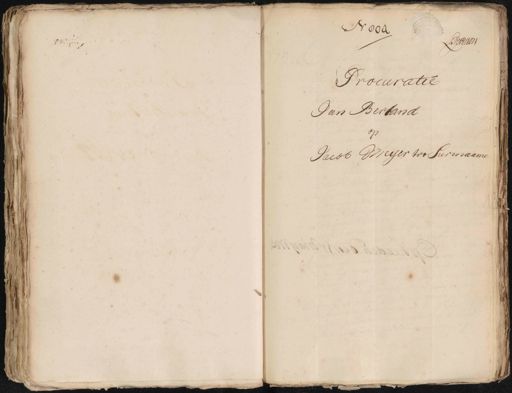 N 002
Procuratie
Jan Berland
op
Jacob Meyer tot Surinaame